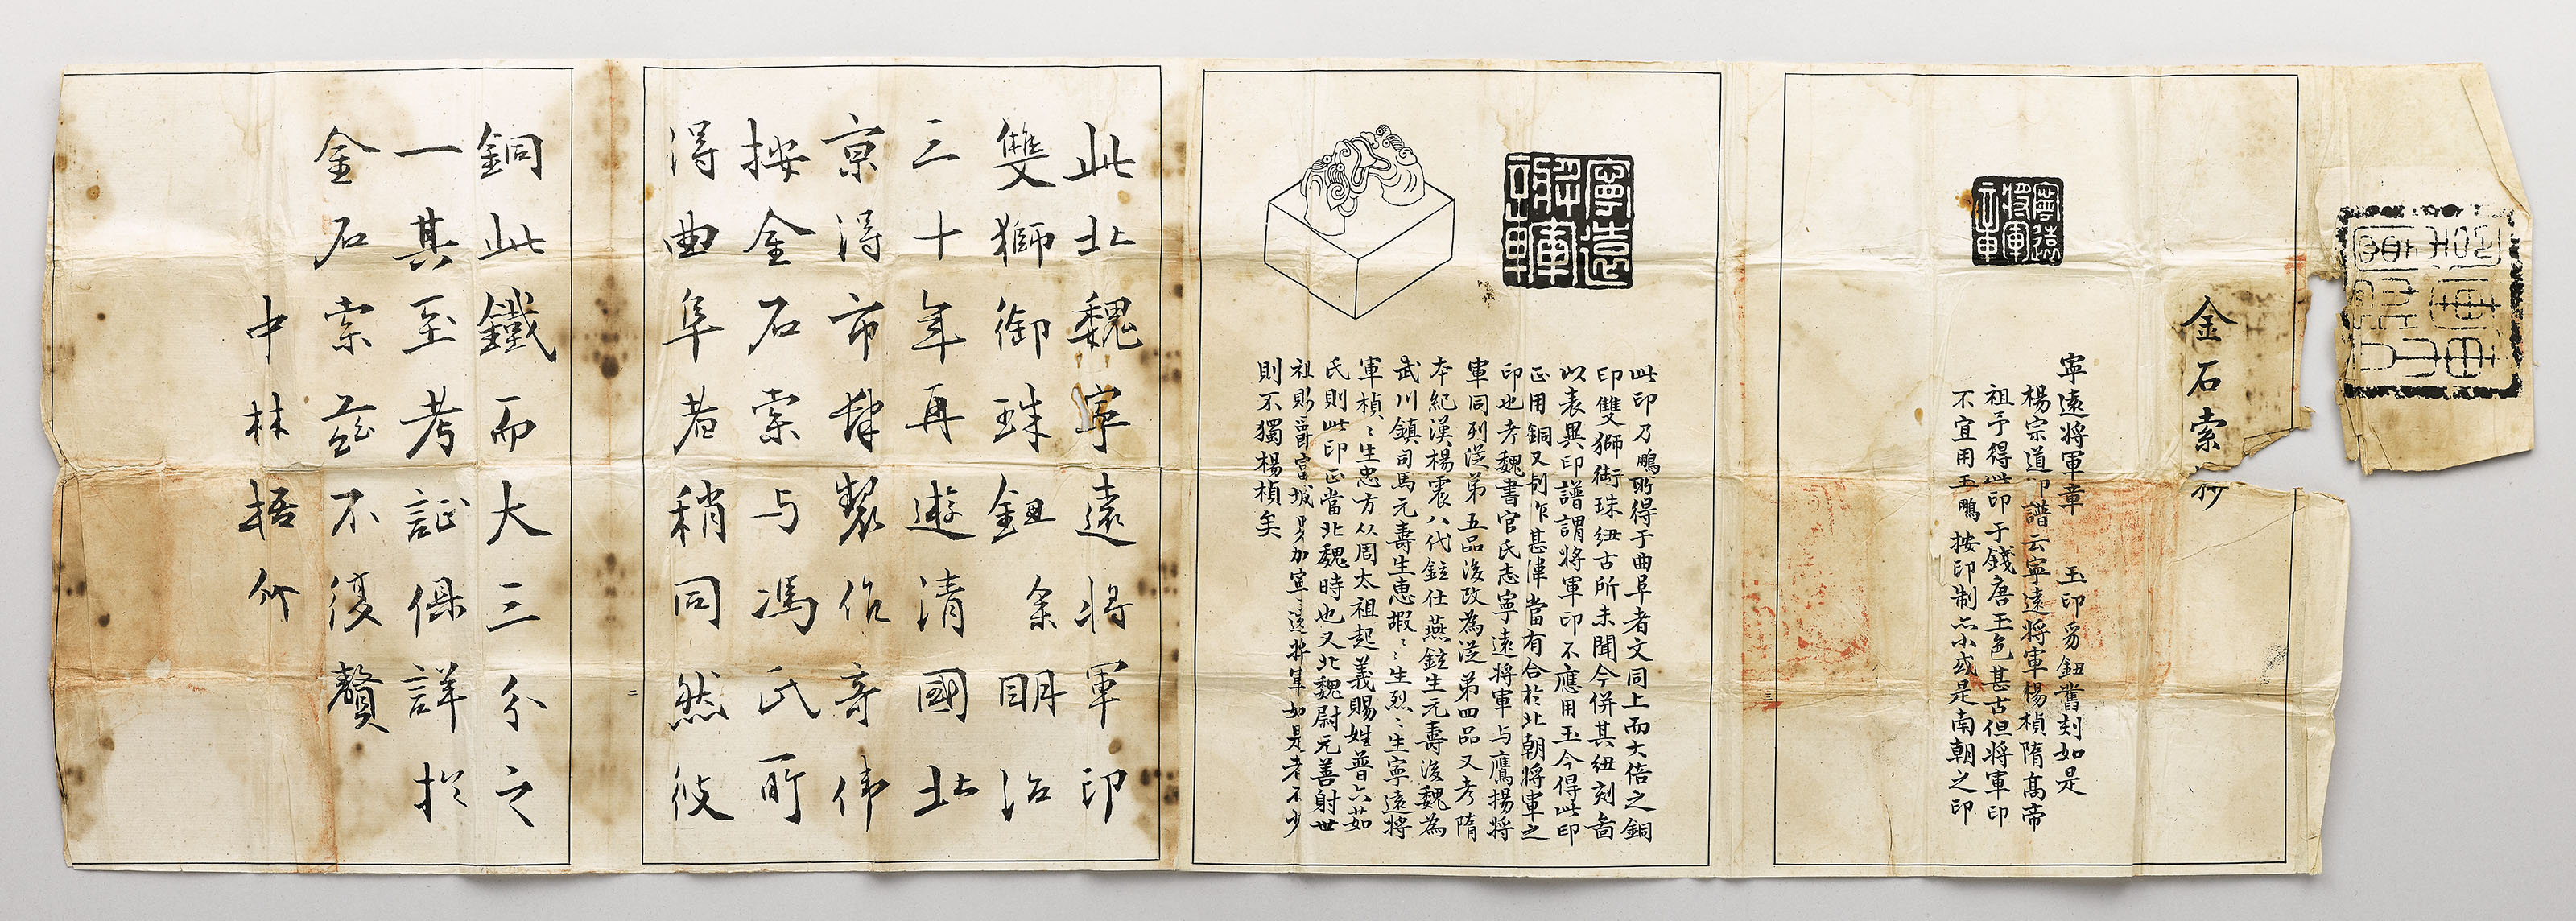 金石索抄
寧遠將軍章
寧遠將軍章　玉印豸鈕舊刻如是
楊宗道印譜云寧遠將軍楊楨隋髙帝
祖予得此印于錢唐玉色甚古但將軍印
不宜用玉鵬按印制亦小或是南朝之印
寧遠將軍章
此印乃鵬所得于曲阜者文同上而大倍之銅
印雙獅銜珠紐古所未聞今併其紐刻啚
以表異印譜謂將軍印不應用玉今得此印
正用銅又制作甚偉當有合於北朝將軍之
印也考魏書官氏志寧遠將軍与鷹揚將
軍同列従第五品後改為従第四品又考隋
本紀漢楊震八代鉉仕燕鉉生元壽後魏為
武川鎮司馬元壽生惠嘏〻生烈〻生寧遠將
軍楨〻生忠方从周太祖起義賜姓普六茹
氏則此印正當北魏時也又北魏尉元善射世
祖賜爵富城男加寧遠將軍如是者不少
則不獨楊楨矣
此北魏寧遠将軍印
雙獅銜珠鈕余明治
三十年再遊清國北
京得市肆製作奇偉
按金石索与馮氏所
得曲阜者稍同然彼
二
三
銅此鐵而大三分之
一其至考証倶詳於
金石索茲不復贅
中林梧竹